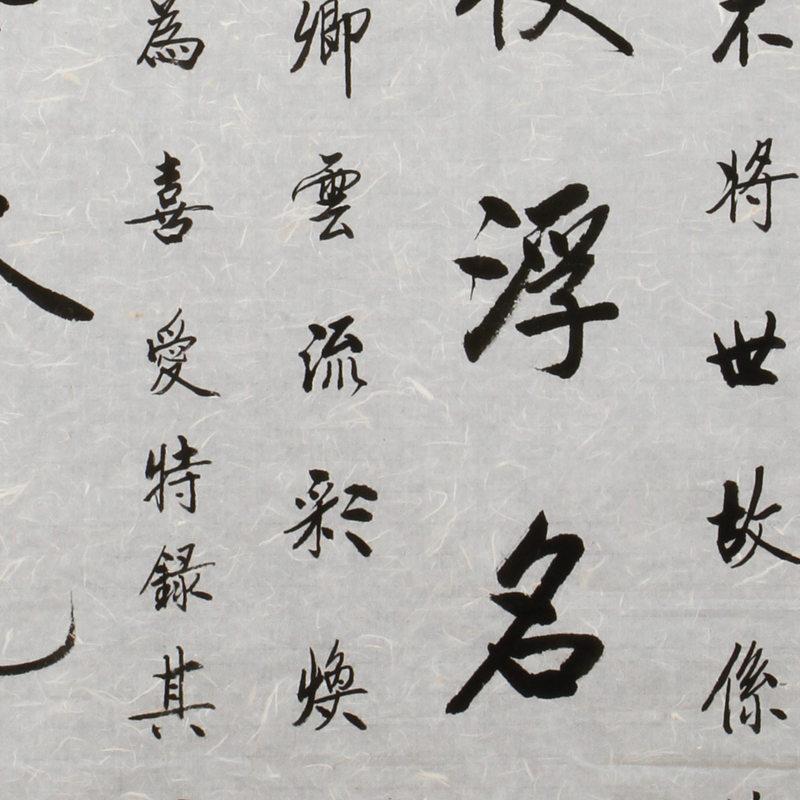 不将世故係
浮名
卿雲流彩煥
為喜愛特録其